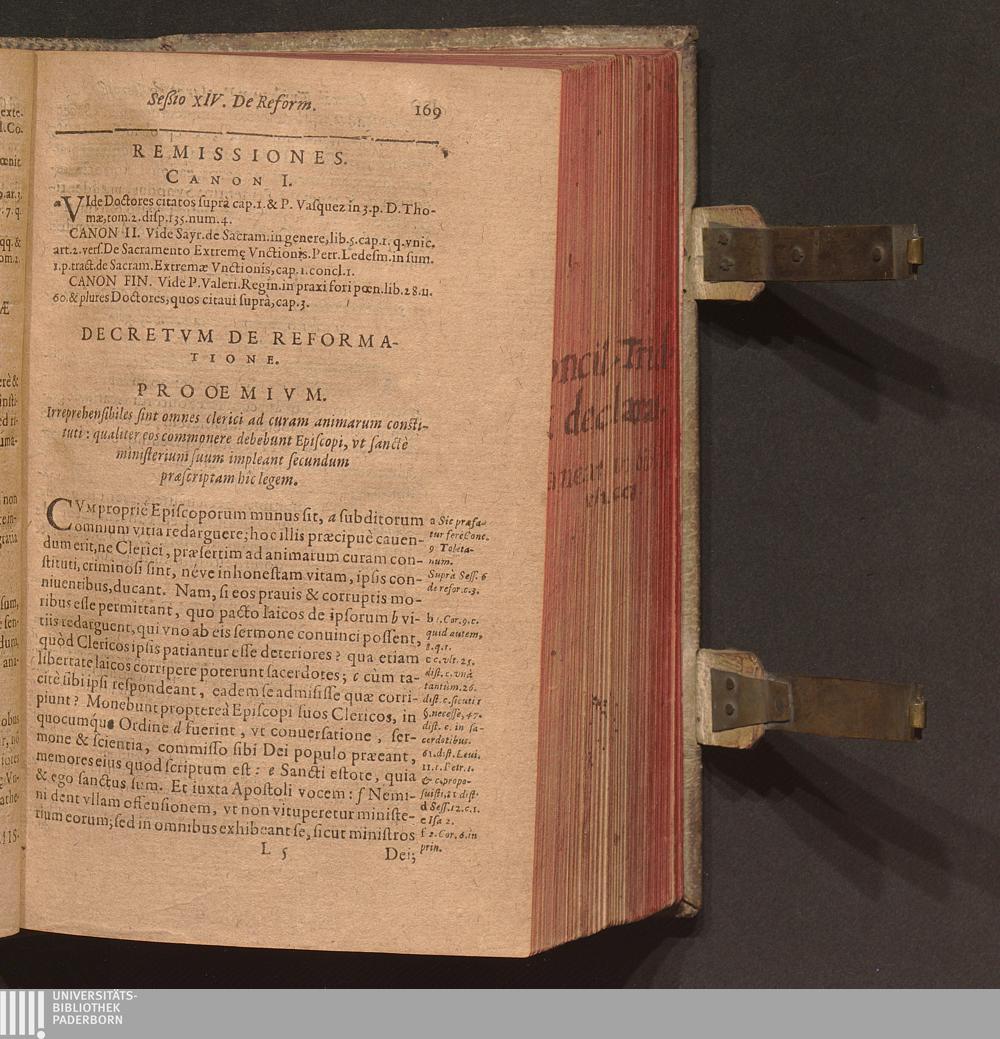 Seſsio XIV. De Reform.
169
REMISSIONES.
CANON I.
a VIde Doctores citatos ſuprà cap.1. & P. Vaſquez in 3.p. D. Tho-
mæ, tom.2. diſp.135. num.4.
CANON II. Vide Sayr. de Sacram. in genere, lib.5. cap.1. q. vnic.
art.2. verſ. De Sacramento Extremę Vnctionis. Petr. Ledeſm. in ſum.
1.p. tract. de Sacram. Extremæ Vnctionis, cap.1. concl.1.
CANON FIN. Vide P. Valeri. Regin. in praxi fori pœn. lib.28. u.
60. & plures Doctores, quos citaui ſuprà, cap.3.
DECRETVM DE REFORMA-
TIONE.
PROOEMIVM.
Irreprehenſibiles ſint omnes clerici ad curam animarum conſti-
tuti: qualiter eos commonere debebunt Epiſcopi, vt ſanctè
miniſterium ſuum impleant ſecundum
præſcriptam hic legem.
CVM propriè Epiſcoporum munus ſit, a ſubditorum
omnium vitia redarguere; hoc illis præcipuè cauen-
dum erit, ne Clerici, præſertim ad animarum curam con-
ſtituti, criminoſi ſint, néve inhoneſtam vitam, ipſis con-
niuentibus, ducant. Nam, ſi eos prauis & corruptis mo-
ribus eſſe permittant, quo pacto laicos de ipſorum b vi-
tiis redarguent, qui vno ab eis ſermone conuinci poſſent,
quòd Clericos ipſis patiantur eſſe deteriores? qua etiam
libertate laicos corripere poterunt ſacerdotes; c cùm ta-
citè ſibi ipſi reſpondeant, eadem ſe admiſiſſe quæ corri-
piunt? Monebunt propterea Epiſcopi ſuos Clericos, in
quocumque Ordine d fuerint, vt conuerſatione, ſer-
mone & ſcientia, commiſſo ſibi Dei populo præeant,
memores eius quod ſcriptum eſt: e Sancti eſtote, quia
& ego ſanctus ſum. Et iuxta Apoſtoli vocem: f Nemi-
ni dent vllam offenſionem, vt non vituperetur miniſte-
rium eorum; ſed in omnibus exhibeant ſe, ſicut miniſtros
L 5
Dei;
a Sic præfa-
tur ferè Conc.
9 Toleta-
num.
Suprà Seſſ. 6
de refor. c.3.
b 1. Cor. 9. c.
quid autem,
8.q.1.
c c. vlt. 25.
diſt. c. vnū
tantùm. 26.
diſt. c. ſicuti r
§. neceſſe, 47.
diſt. c. in ſa-
cerdotibus.
61. diſt. Leui.
11. 1. Petr. 1.
& c. propo-
ſuiſti, 82 diſt.
d Seſſ. 12. c. 1.
e Iſa 2.
f 2. Cor. 6. in
prin.
exte-
l. Co.
œnit
9.ar.3.
7.q.
qq. &
om.2.
Æ
erè &
inſti-
ed ri-
uma-
non
tem-
gratia
ſum,
ſen-
dum,
ani-
obus
iores
athe-
oncil. Trid
declarat
UNIVERSITÄTS-
BIBLIOTHEK
PADERBORN